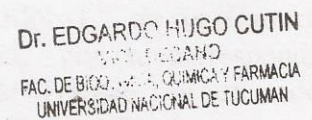 Dr. EDGARDO HUGO CUTIN
VICE DECANO
FAC. DE QUIMICA Y FARMACIA
UNIVERSIDAD NACIONAL DE TUCUMAN